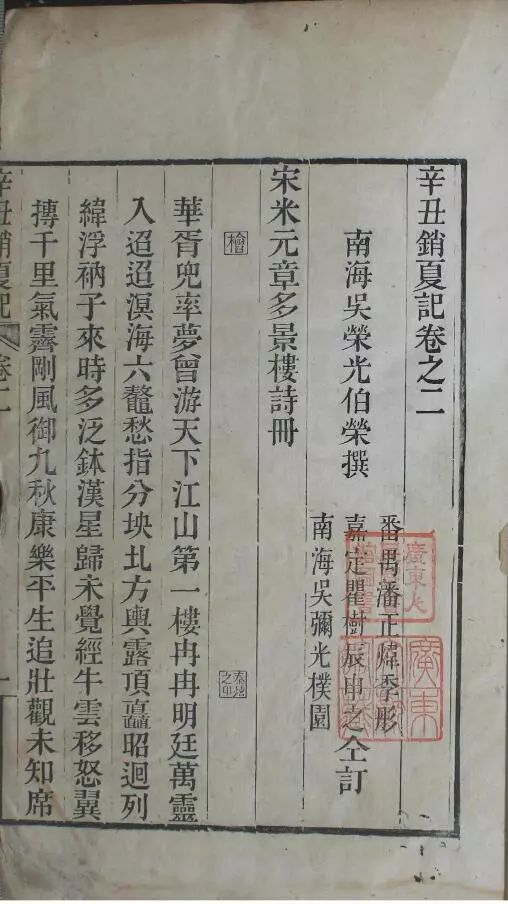 辛丑銷夏記卷之二
南海吳榮光伯榮撰
番禺潘正煒季彤
嘉定瞿樹辰申之仝訂
南海吳彌光樸園
宋米元章多景樓詩冊
檜
秦檜之印
華胥兜率夢曾游天下江山第一樓冉冉明廷萬靈
入迢迢溟海六鼇愁指分坱圠方輿露頂矗昭迴列
緯浮衲子來時多泛鉢漢星歸未覺經牛雲移怒翼
摶千里氣霽剛風御九秋康樂平生追壯觀未知席
辛丑銷夏記
卷二
一
廣東
廣東